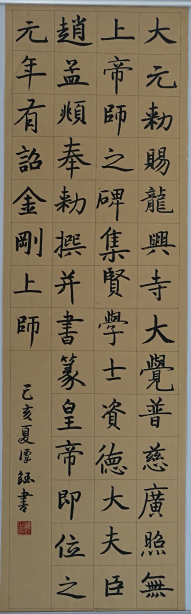 大元勅賜龍興寺大覺普慈廣照無
上帝師之碑集賢學士資德大夫臣
趙孟頫奉勅撰并書篆皇帝即位之
元年有詔金剛上師
己亥夏淳鈺書